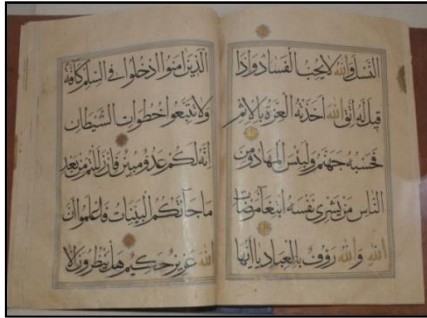 النسل والله لا يحب الفساد واذا
قيل له اتق الله اخذته العزة بالاثم
فحسبه جهنم ولبئس المهاد ومن
الناس من يشرى نفسه ابتغا مرضات
الله والله رؤف بالعباد يا ايها
الذين امنوا ادخلوا فى السلم كافة
ولا تتبعوا خطوات الشيطان
انه لكم عدو مبين فان زللتم من بعد
ما جاتكم البينات فاعلموا ان
الله عزيز حكيم هل ينظرون الا